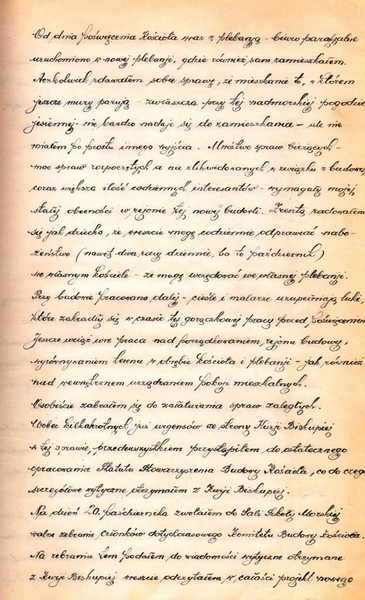 Od dnia poświęcenia Kościoła wraz z plebanją - biuro parafjalne
uruchomiono w nowej plebanji, gdzie również sam zamieszkałem.
Aczkolwiek zdawałem sobie sprawę, że mieszkanie to, w którem
jeszcze mury parują zwłaszcza przy tej nadmorskiej pogodzie
jesiennej - nie bardzo nadaje się do zamieszkania - ale nie
miałem po prostu innego wyjścia. Mnóstwo spraw bieżących -
moc spraw rozpoczętych a nie zlikwidowanych w związku z budową
coraz większa ilość codziennych interesantów - wymagały mojej
stałej obecności w rejonie tej nowej budowli. Zresztą radowałem
się jak dziecko, że wreszcie mogę codziennie odprawiać nabo-
żeństwo (nawet dwa razy dziennie, bo to październik)
we własnym Kościele - że mogę urzędować we własnej plebanji.
Przy budowie pracowano dalej - cieśle i malarze uzupełniają luki,
które zakradły się w czasie tej gorączkowej pracy przed poświęceniem
Jeszcze wciąż wre praca nad porządkowaniem rejonu budowy,
wyrównywaniem terenu w obrębie Kościoła i plebanji - jak również
nad wewnętrznem urządzaniem pokoji mieszkalnych.
Osobiście zabrałem się do załaturania spraw zaległych.
Wobec kilkakrotnych już urgensów ze strony Kurji Biskupiej
w tej sprawie, przedewszystkiem przystąpiłem do ostatecznego
opracowania Statutu Stowarzyszenia Budowy Kościoła, co do czego
szczegółowe wytyczne otrzymałem z Kurji Biskupiej.
Na dzień 20. października zwołałem do Sali Szkoły Morskiej
walne zebranie członków dotychczasowego Komitetu Budowy Kościoła.
Na zebraniu tem podałem do wiadomości wytyczne otrzymane
z Kurji Biskupiej wreszcie odczytałem w całości projekt nowego